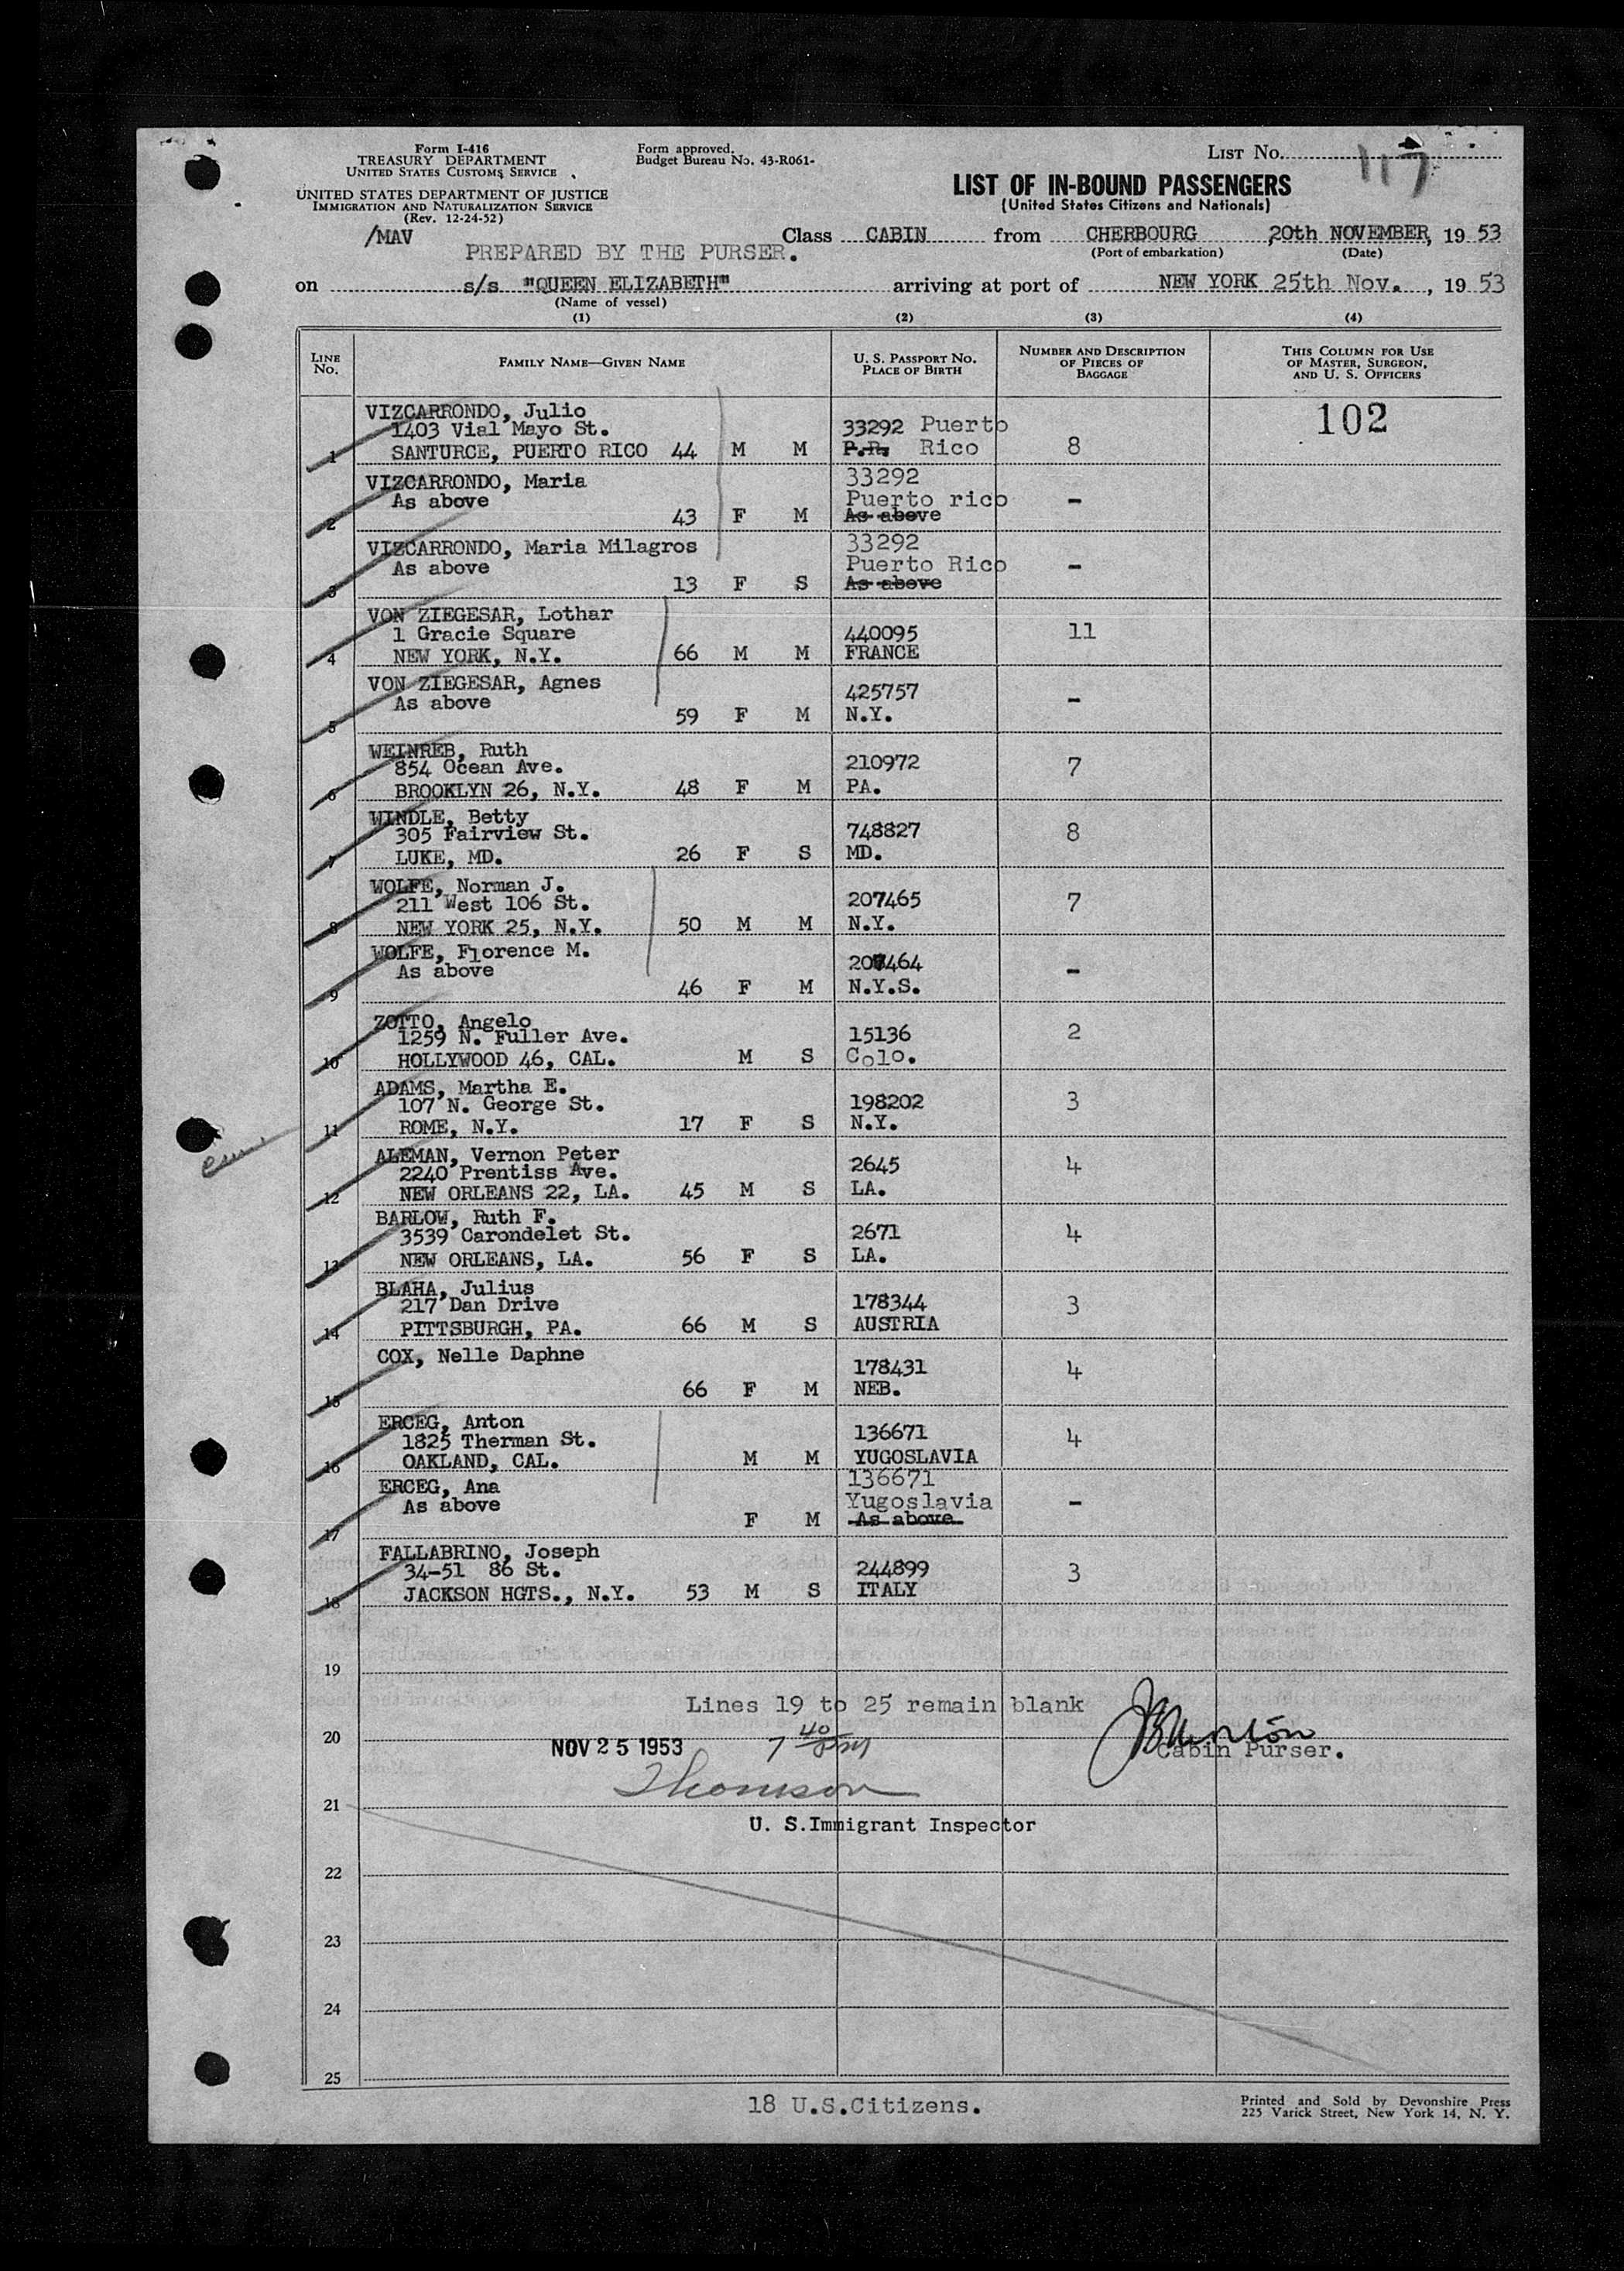 Form I-416
TREASURY DEPARTMENT
UNITED STATES CUSTOMS SERVICE
UNITED STATES DEPARTMENT OF JUSTICE
IMMIGRATION AND NATURALIZATION SERVICE
(Rev. 12-24-52)
Form approved.
Budget Bureau No. 43-R061-
LIST No. 117
LIST OF IN-BOUND PASSENGERS
(United States Citizens and Nationals)
/MAV
PREPARED BY THE PURSER.
Class CABIN from CHERBOURG 20th NOVEMBER, 19 53
(Port of embarkation) (Date)
on s/s "QUEEN ELIZABETH" arriving at port of NEW YORK 25th Nov. , 19 53
(Name of vessel)
(1) (2) (3) (4)
LINE No. FAMILY NAME—GIVEN NAME U. S. PASSPORT No. PLACE OF BIRTH NUMBER AND DESCRIPTION OF PIECES OF BAGGAGE THIS COLUMN FOR USE OF MASTER, SURGEON, AND U. S. OFFICERS
102
VIZCARRONDO, Julio
1403 Vial Mayo St. 33292 Puerto
1 SANTURCE, PUERTO RICO 44 M M P.R. Rico 8
VIZCARRONDO, Maria 33292
As above Puerto rico -
2 43 F M As above
VIZCARRONDO, Maria Milagros 33292
As above Puerto Rico -
3 13 F S As above
VON ZIEGESAR, Lothar
1 Gracie Square 440095 11
4 NEW YORK, N.Y. 66 M M FRANCE
VON ZIEGESAR, Agnes
As above 425757 -
5 59 F M N.Y.
WEINREB, Ruth
854 Ocean Ave. 210972 7
6 BROOKLYN 26, N.Y. 48 F M PA.
WINDLE, Betty
305 Fairview St. 748827 8
7 LUKE, MD. 26 F S MD.
WOLFE, Norman J.
211 West 106 St. 207465 7
8 NEW YORK 25, N.Y. 50 M M N.Y.
WOLFE, Florence M.
As above 207464 -
9 46 F M N.Y.S.
ZOTTO, Angelo
1259 N. Fuller Ave. 15136 2
10 HOLLYWOOD 46, CAL. M S Colo.
ADAMS, Martha E.
107 N. George St. 198202 3
11 ROME, N.Y. 17 F S N.Y.
ALEMAN, Vernon Peter
2240 Prentiss Ave. 2645 4
12 NEW ORLEANS 22, LA. 45 M S LA.
BARLOW, Ruth F.
3539 Carondelet St. 2671 4
13 NEW ORLEANS, LA. 56 F S LA.
BLAHA, Julius
217 Dan Drive 178344 3
14 PITTSBURGH, PA. 66 M S AUSTRIA
COX, Nelle Daphne
178431 4
15 66 F M NEB.
ERCEG, Anton
1825 Therman St. 136671 4
16 OAKLAND, CAL. M M YUGOSLAVIA
ERCEG, Ana 136671
As above Yugoslavia -
17 F M As above
FALLABRINO, Joseph
34-51 86 St. 244899 3
18 JACKSON HGTS., N.Y. 53 M S ITALY
19
Lines 19 to 25 remain blank
20
NOV 25 1953 7 40 PM
Cabin Purser.
Thomson
21
U. S.Immigrant Inspector
22
23
24
25
18 U.S.Citizens.
Printed and Sold by Devonshire Press
225 Varick Street, New York 14, N. Y.